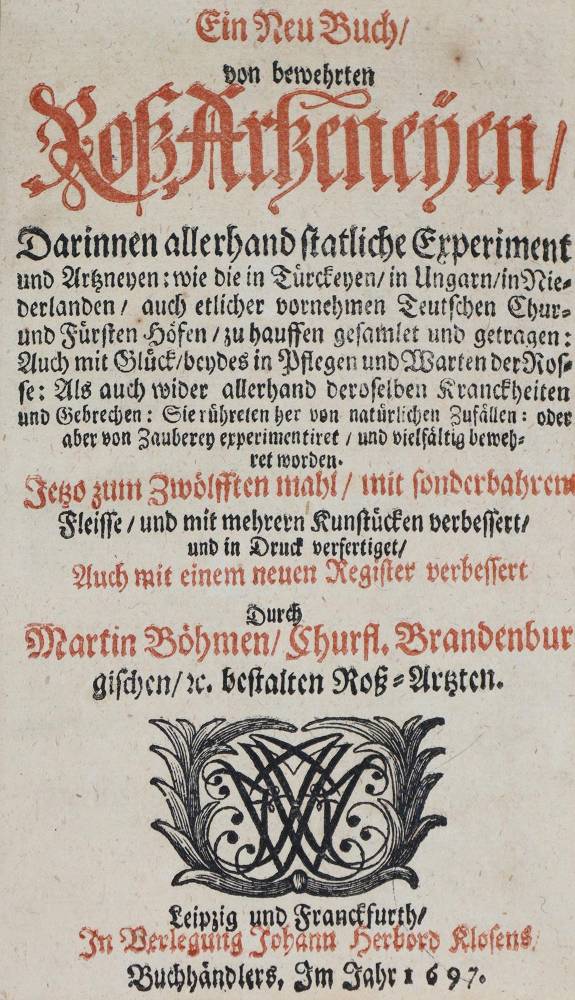 Ein Neu Buch/
von bewehrten
Roß Artzeneyen/
Darinnen allerhand statliche Experiment
und Artzneyen: wie die in Türckeyen/ in Ungarn/ in Nie-
derlanden/ auch etlicher vornehmen Teutschen Chur-
und Fürsten Höfen/ zu hauffen gesamlet und getragen:
Auch mit Glück/ beydes in Pflegen und Warten der Ros-
se: Als auch wider allerhand deroselben Kranckheiten
und Gebrechen: Sie rühreten her von natürlichen Zufällen: oder
aber von Zauberey experimentiret/ und vielfältig beweh-
ret worden.
Jetzo zum Zwölfften mahl/ mit sonderbahren
Fleisse/ und mit mehrern Kunstücken verbessert/
und in Druck verfertiget/
Auch mit einem neuen Register verbessert
Durch
Martin Böhmen/ Churfl. Brandenbur
gischen/ ꝛc. bestalten Roß-Artzten.
Leipzig und Franckfurth/
In Verlegung Johann Herbord Klosens/
Buchhändlers, Im Jahr 1697.